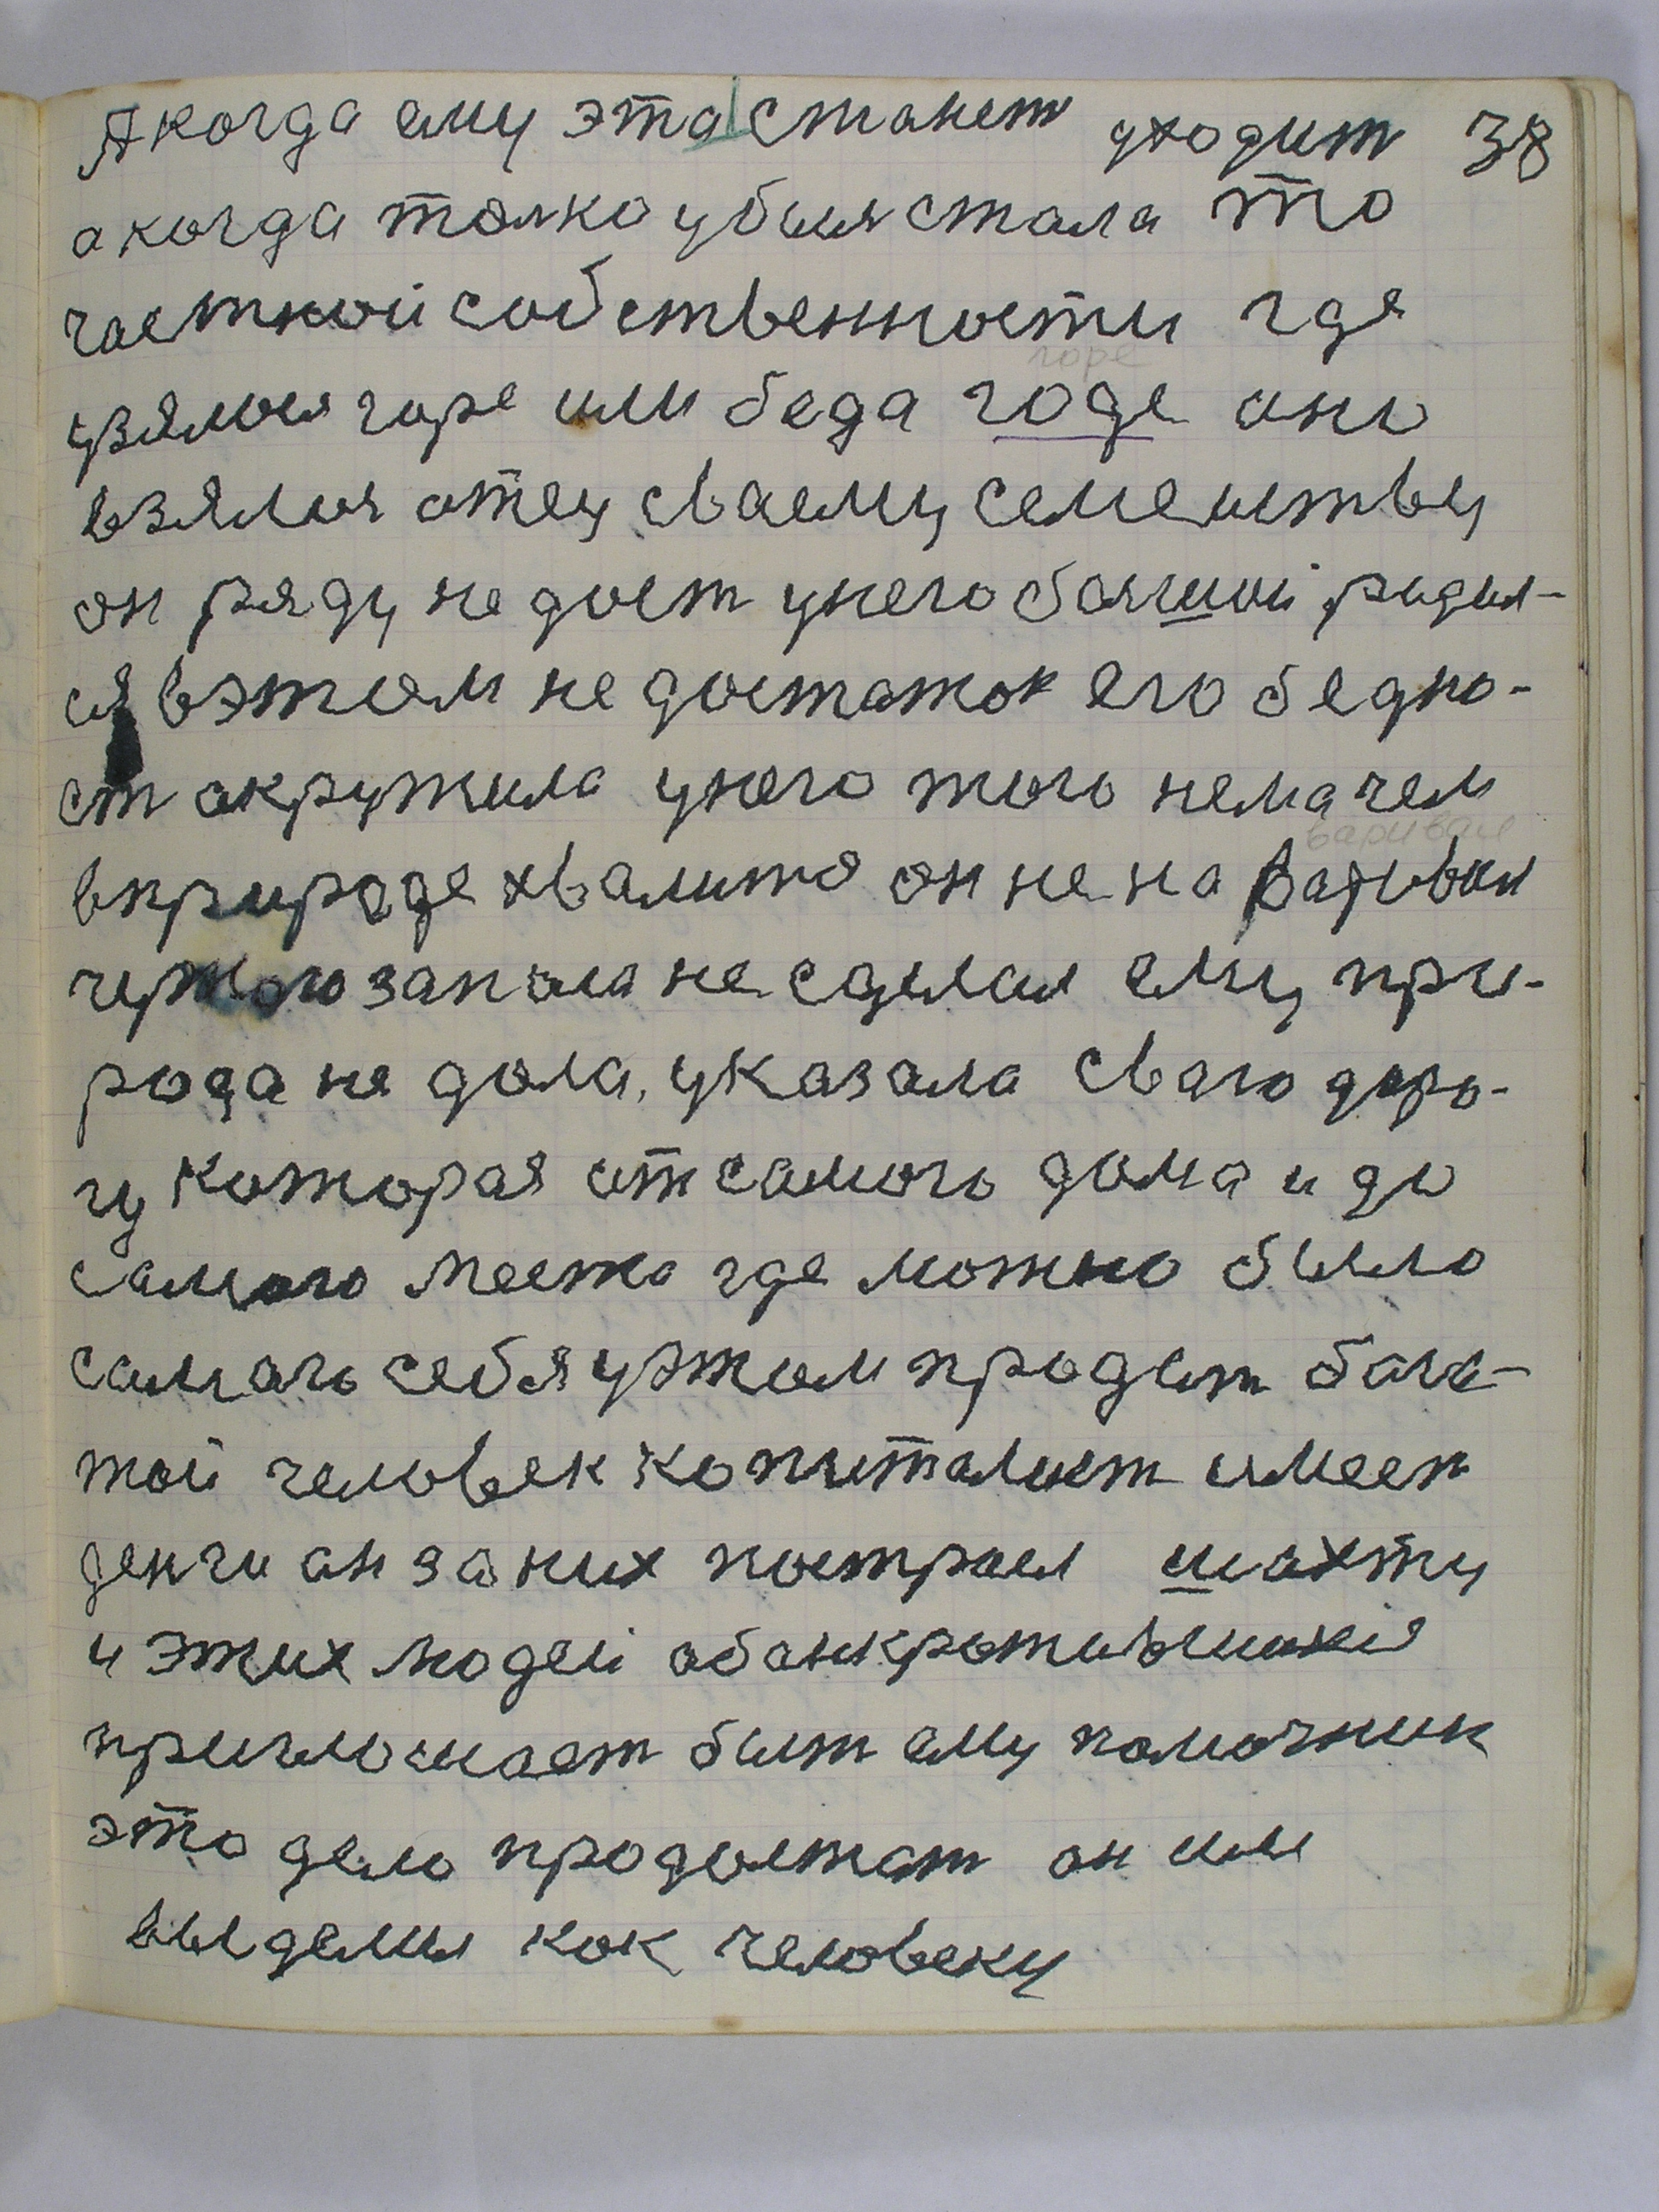 А когда ему эта станет уходит 38
а когда толко убыля стала то
частной собственности где
узялося горе или беда годе оно
горе
взялося отец сваему семеиству
он ряду не дает унего болшой родил-
ся вэтом не достаток его бедно-
ст акружила унего того нема чем
вприроде хвалится он не на варивал
варивал
чужого запаса не сделал ему при-
рода не дала, указала сваю доро-
гу которая от самого дома и до
самого места где можно было
самаго себя уэтом продат бога-
той человек капиталист имеет
денги он за них построел шахту
и этих людей обанкротившихся
приглошает быт ему помочник
это дело продолжат он им
выделил как человеку